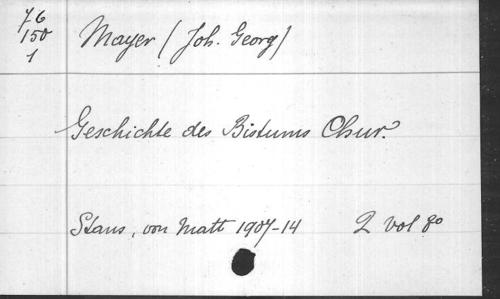 76
150
1
Mayer (Joh. Georg)
Geschichte des Bistums Chur.
Stans, von Matt 1907-14 2 vol 8o